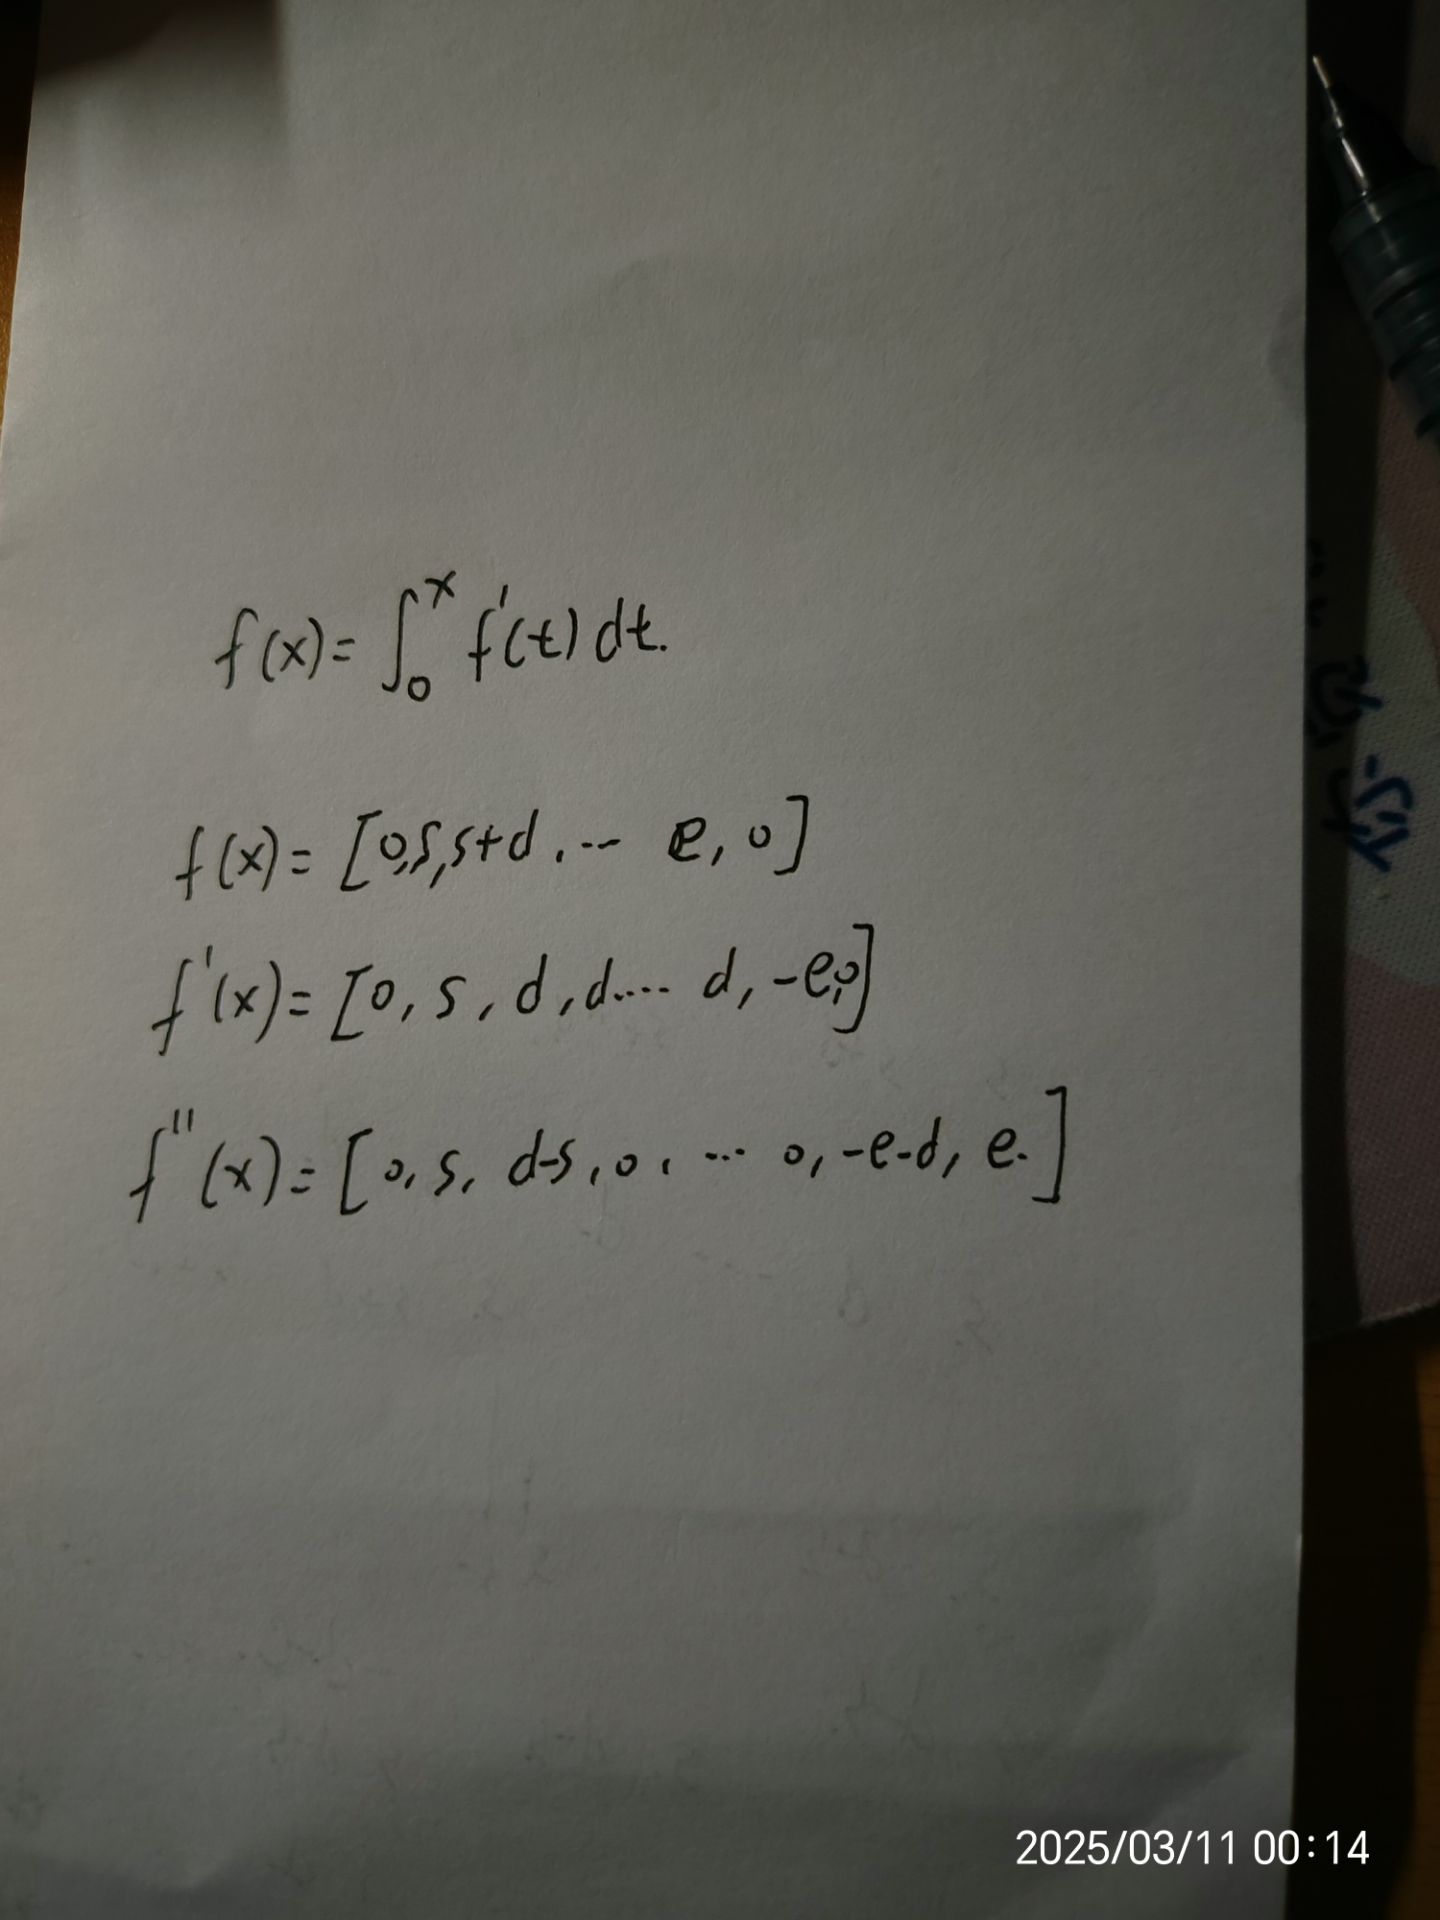 f(x)=∫₀ˣ f'(t) dt.
f(x)= [0,s,s+d, ... e, 0]
f'(x)= [0, s, d, d.... d, -e,0]
f''(x)= [0, s, d-s, 0, ... 0, -e-d, e.]
2025/03/11 00:14